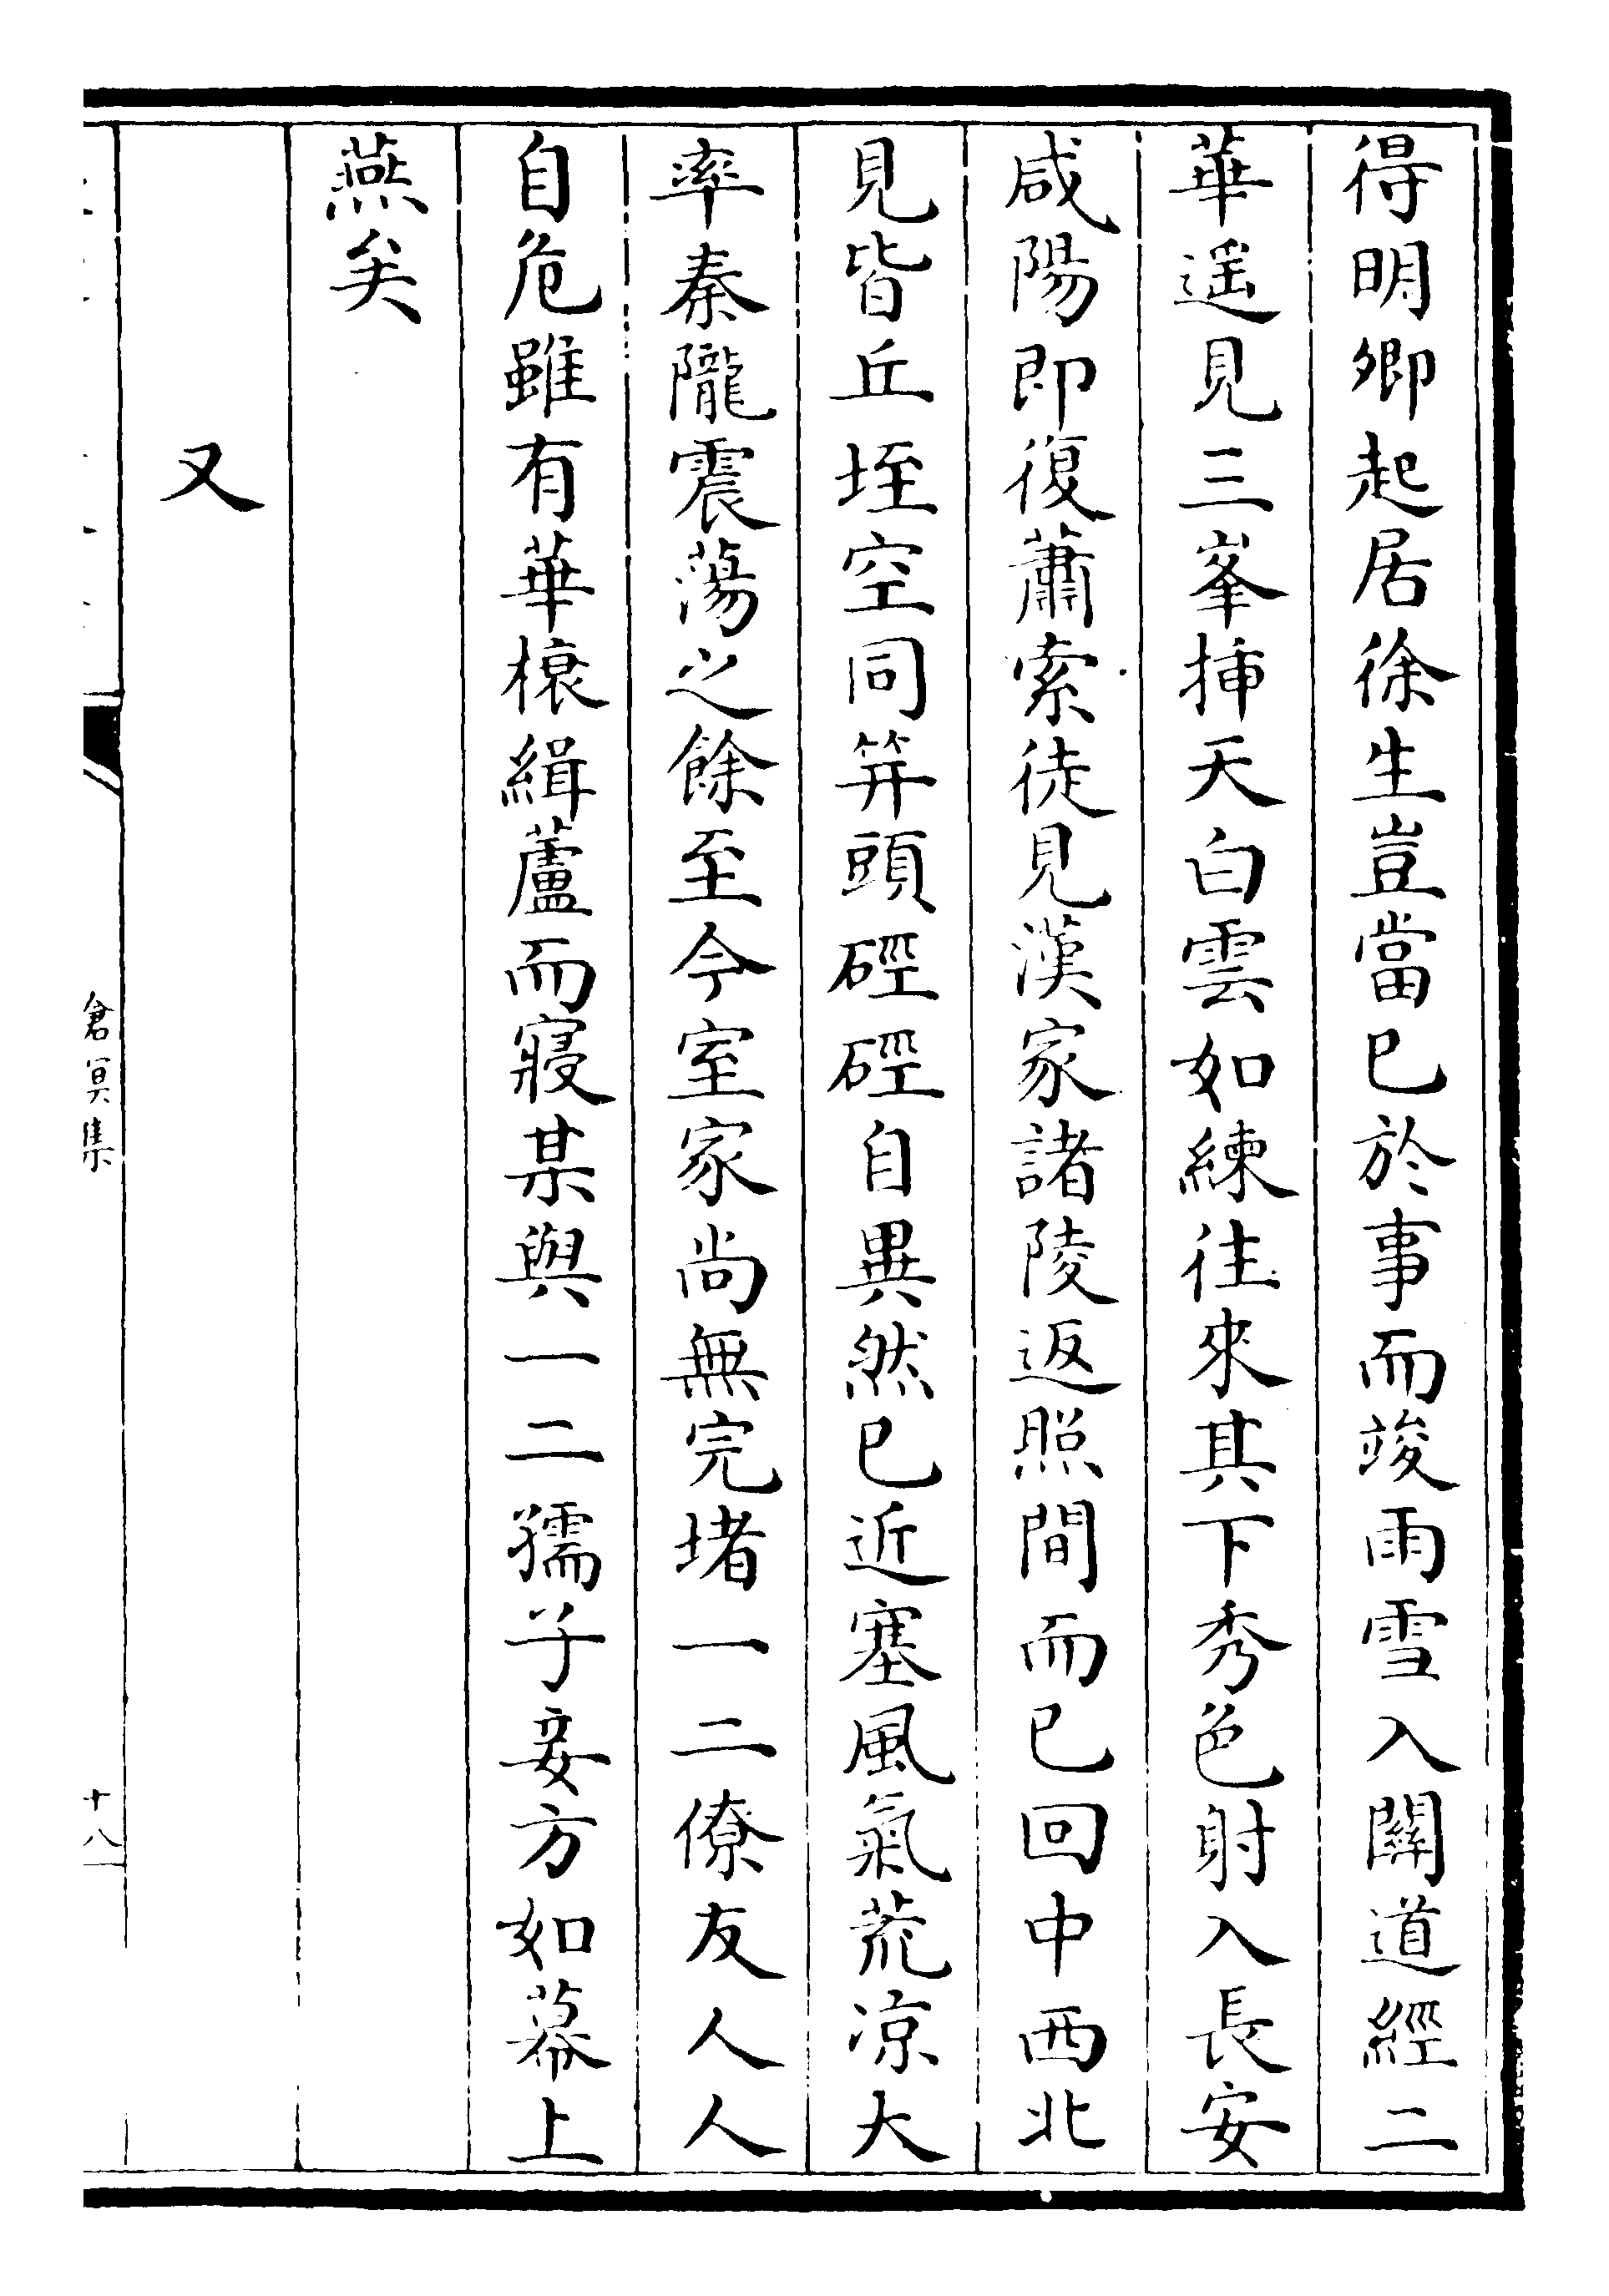 得明卿起居徐生豈當已於事而竣雨雪入關道經二
華遥見三峯揷天白雲如練往來其下秀色射入長安
咸陽即復蕭索徒見漢家諸陵返照間而已回中西北
見皆丘垤空同筓頭硜硜自異然已近塞風氣荒凉大
率秦隴震蕩之餘至今室家尚無完堵一二僚友人人
自危雖有華榱緝蘆而寢某與一二孺子妾方如幕上
燕矣
又
滄冥集
十八